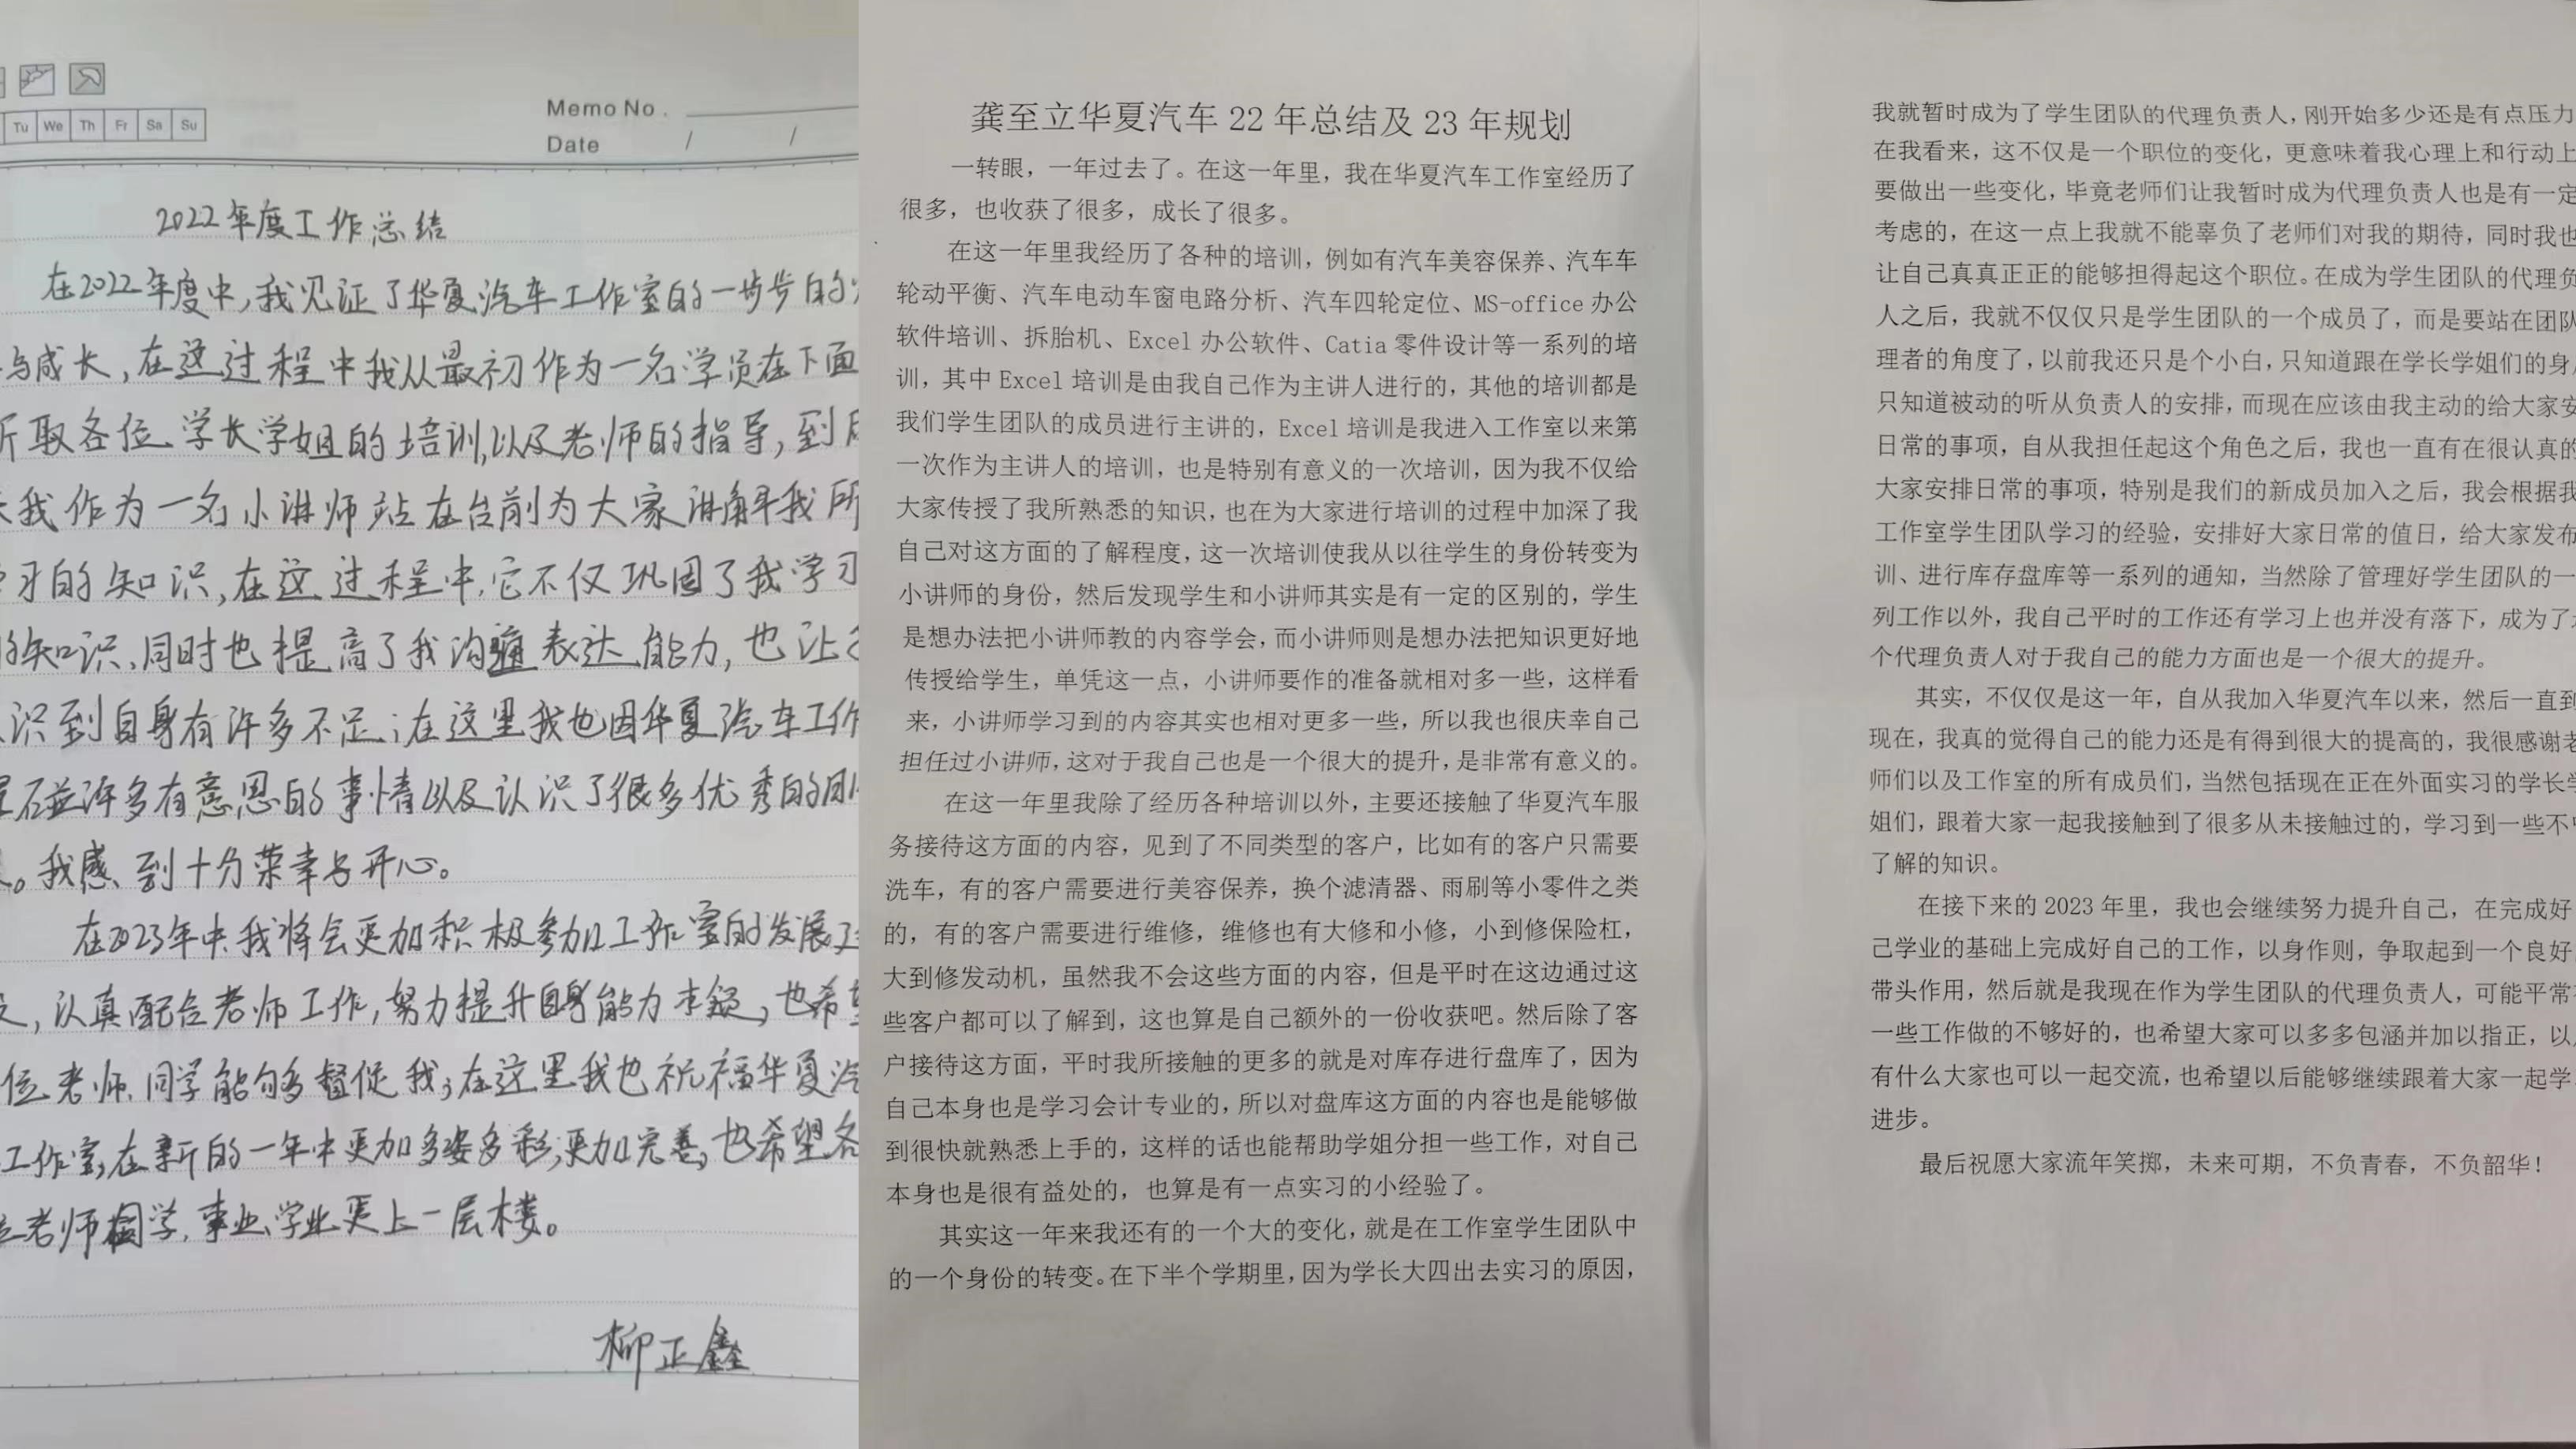 Tu We Th Fr Sa Su
Memo No.
Date / /
2022年度工作总结
在2022年度中,我见证了华夏汽车工作室的一步步的
与成长,在这过程中我从最初作为一名学员在下面
听取各位学长学姐的培训,以及老师的指导,到
我作为一名小讲师站在台前为大家讲解我所
习的知识,在这过程中,它不仅巩固了我学习
的知识,同时也提高了我沟通表达能力,也让
识到自身有许多不足;在这里我也因华夏汽车工作
许多有意思的事情以及认识了很多优秀的
。我感到十分荣幸与开心。
在2023年中我将会更加积极参加工作室的发展
,认真配合老师工作,努力提升自身能力本领,也希
位老师、同学能够多督促我;在这里我也祝福华夏汽
工作室,在新的一年中更加多姿多彩,更加完善,也希望各
老师同学,事业、学业更上一层楼。
柳正鑫
龚至立华夏汽车 22 年总结及 23 年规划
一转眼，一年过去了。在这一年里，我在华夏汽车工作室经历了
很多，也收获了很多，成长了很多。
在这一年里我经历了各种的培训，例如有汽车美容保养、汽车车
轮动平衡、汽车电动车窗电路分析、汽车四轮定位、MS-office 办公
软件培训、拆胎机、Excel 办公软件、Catia 零件设计等一系列的培
训，其中 Excel 培训是由我自己作为主讲人进行的，其他的培训都是
我们学生团队的成员进行主讲的，Excel 培训是我进入工作室以来第
一次作为主讲人的培训，也是特别有意义的一次培训，因为我不仅给
大家传授了我所熟悉的知识，也在为大家进行培训的过程中加深了我
自己对这方面的了解程度，这一次培训使我从以往学生的身份转变为
小讲师的身份，然后发现学生和小讲师其实是有一定的区别的，学生
是想办法把小讲师教的内容学会，而小讲师则是想办法把知识更好地
传授给学生，单凭这一点，小讲师要作的准备就相对多一些，这样看
来，小讲师学习到的内容其实也相对更多一些，所以我也很庆幸自己
担任过小讲师，这对于我自己也是一个很大的提升，是非常有意义的。
在这一年里我除了经历各种培训以外，主要还接触了华夏汽车服
务接待这方面的内容，见到了不同类型的客户，比如有的客户只需要
洗车，有的客户需要进行美容保养，换个滤清器、雨刷等小零件之类
的，有的客户需要进行维修，维修也有大修和小修，小到修保险杠，
大到修发动机，虽然我不会这些方面的内容，但是平时在这边通过这
些客户都可以了解到，这也算是自己额外的一份收获吧。然后除了客
户接待这方面，平时我所接触的更多的就是对库存进行盘库了，因为
自己本身也是学习会计专业的，所以对盘库这方面的内容也是能够做
到很快就熟悉上手的，这样的话也能帮助学姐分担一些工作，对自己
本身也是很有益处的，也算是有一点实习的小经验了。
其实这一年来我还有的一个大的变化，就是在工作室学生团队中
的一个身份的转变。在下半个学期里，因为学长大四出去实习的原因，
我就暂时成为了学生团队的代理负责人，刚开始多少还是有点压力
在我看来，这不仅是一个职位的变化，更意味着我心理上和行动上
要做出一些变化，毕竟老师们让我暂时成为代理负责人也是有一定
考虑的，在这一点上我就不能辜负了老师们对我的期待，同时我也
让自己真真正正的能够担得起这个职位。在成为学生团队的代理负
人之后，我就不仅仅只是学生团队的一个成员了，而是要站在团队
理者的角度了，以前我还只是个小白，只知道跟在学长学姐们的身
只知道被动的听从负责人的安排，而现在应该由我主动的给大家安
日常的事项，自从我担任起这个角色之后，我也一直有在很认真的
大家安排日常的事项，特别是我们的新成员加入之后，我会根据我
工作室学生团队学习的经验，安排好大家日常的值日，给大家发布
训、进行库存盘库等一系列的通知，当然除了管理好学生团队的一
列工作以外，我自己平时的工作还有学习上也并没有落下，成为了
个代理负责人对于我自己的能力方面也是一个很大的提升。
其实，不仅仅是这一年，自从我加入华夏汽车以来，然后一直到
现在，我真的觉得自己的能力还是有得到很大的提高的，我很感谢老
师们以及工作室的所有成员们，当然包括现在正在外面实习的学长学
姐们，跟着大家一起我接触到了很多从未接触过的，学习到一些不
了解的知识。
在接下来的 2023 年里，我也会继续努力提升自己，在完成好
己学业的基础上完成好自己的工作，以身作则，争取起到一个良好
带头作用，然后就是我现在作为学生团队的代理负责人，可能平常
一些工作做的不够好的，也希望大家可以多多包涵并加以指正，以
有什么大家也可以一起交流，也希望以后能够继续跟着大家一起学
进步。
最后祝愿大家流年笑掷，未来可期，不负青春，不负韶华！